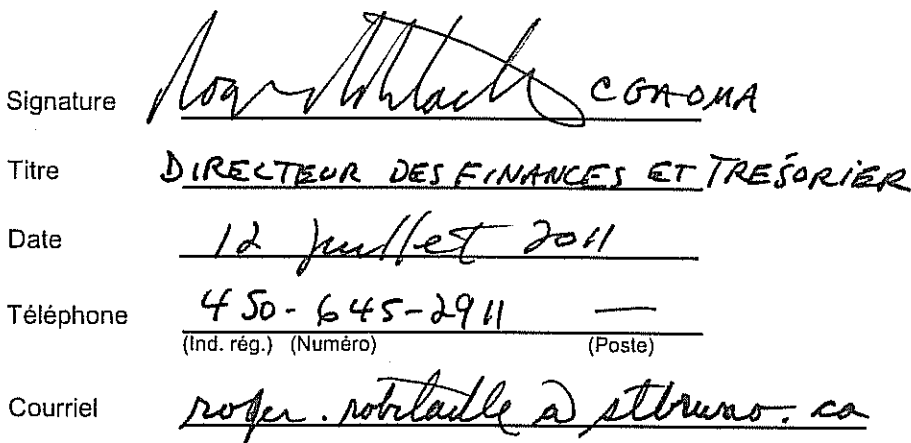 Signature CGA OMA
Titre DIRECTEUR DES FINANCES ET TRÉSORIER
Date 12 juillet 2011
Téléphone 450-645-2911 —
(Ind. rég.) (Numéro) (Poste)
Courriel roger.robitaille @ stbruno.ca